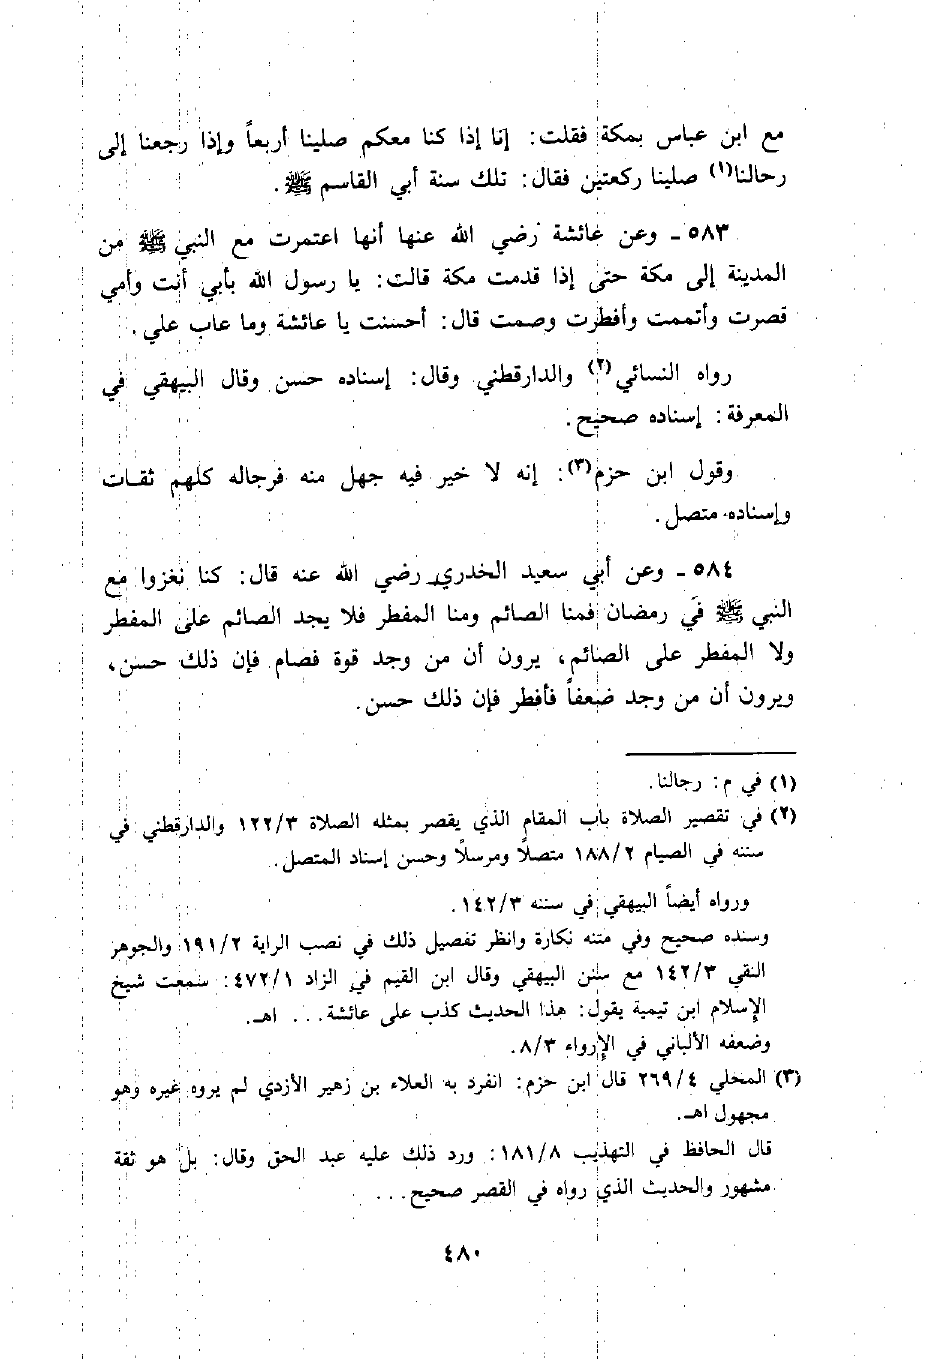 مع ابن عباس بمكة فقلت: إنا إذا كنا معكم صلينا أربعاً وإذا رجعنا إلى
رحالنا(١) صلينا ركعتين فقال: تلك سنة أبي القاسم ﷺ.
٥٨٣ - وعن عائشة رضي الله عنها أنها اعتمرت مع النبي ﷺ من
المدينة إلى مكة حتى إذا قدمت مكة قالت: يا رسول الله بأبي أنت وأمي
قصرت وأتممت وأفطرت وصمت قال: أحسنت يا عائشة وما عاب علي.
رواه النسائي(٢) والدارقطني وقال: إسناده حسن وقال البيهقي في
المعرفة: إسناده صحيح.
وقول ابن حزم(٣): إنه لا خير فيه جهل منه فرجاله كلهم ثقات
وإسناده متصل.
٥٨٤ - وعن أبي سعيد الخدري رضي الله عنه قال: كنا نغزوا مع
النبي ﷺ في رمضان فمنا الصائم ومنا المفطر فلا يجد الصائم على المفطر
ولا المفطر على الصائم، يرون أن من وجد قوة فصام فإن ذلك حسن،
ويرون أن من وجد ضعفاً فأفطر فإن ذلك حسن.
(١) في م: رجالنا.
(٢) في تقصير الصلاة باب المقام الذي يقصر بمثله الصلاة ١٢٢/٣ والدارقطني في
سننه في الصيام ١٨٨/٢ متصلاً ومرسلاً وحسن إسناد المتصل.
ورواه أيضاً البيهقي في سننه ١٤٢/٣.
وسنده صحيح وفي متنه نكارة وانظر تفصيل ذلك في نصب الراية ١٩١/٢ والجوهر
النقي ١٤٢/٣ مع سنن البيهقي وقال ابن القيم في الزاد ٤٧٢/١: سمعت شيخ
الإسلام ابن تيمية يقول: هذا الحديث كذب على عائشة... اهـ.
وضعفه الألباني في الإرواء ٨/٣.
(٣) المحلي ٢٦٩/٤ قال ابن حزم: انفرد به العلاء بن زهير الأزدي لم يروه غيره وهو
مجهول اهـ.
قال الحافظ في التهذيب ١٨١/٨: ورد ذلك عليه عبد الحق وقال: بل هو ثقة
مشهور والحديث الذي رواه في القصر صحيح...
٤٨٠